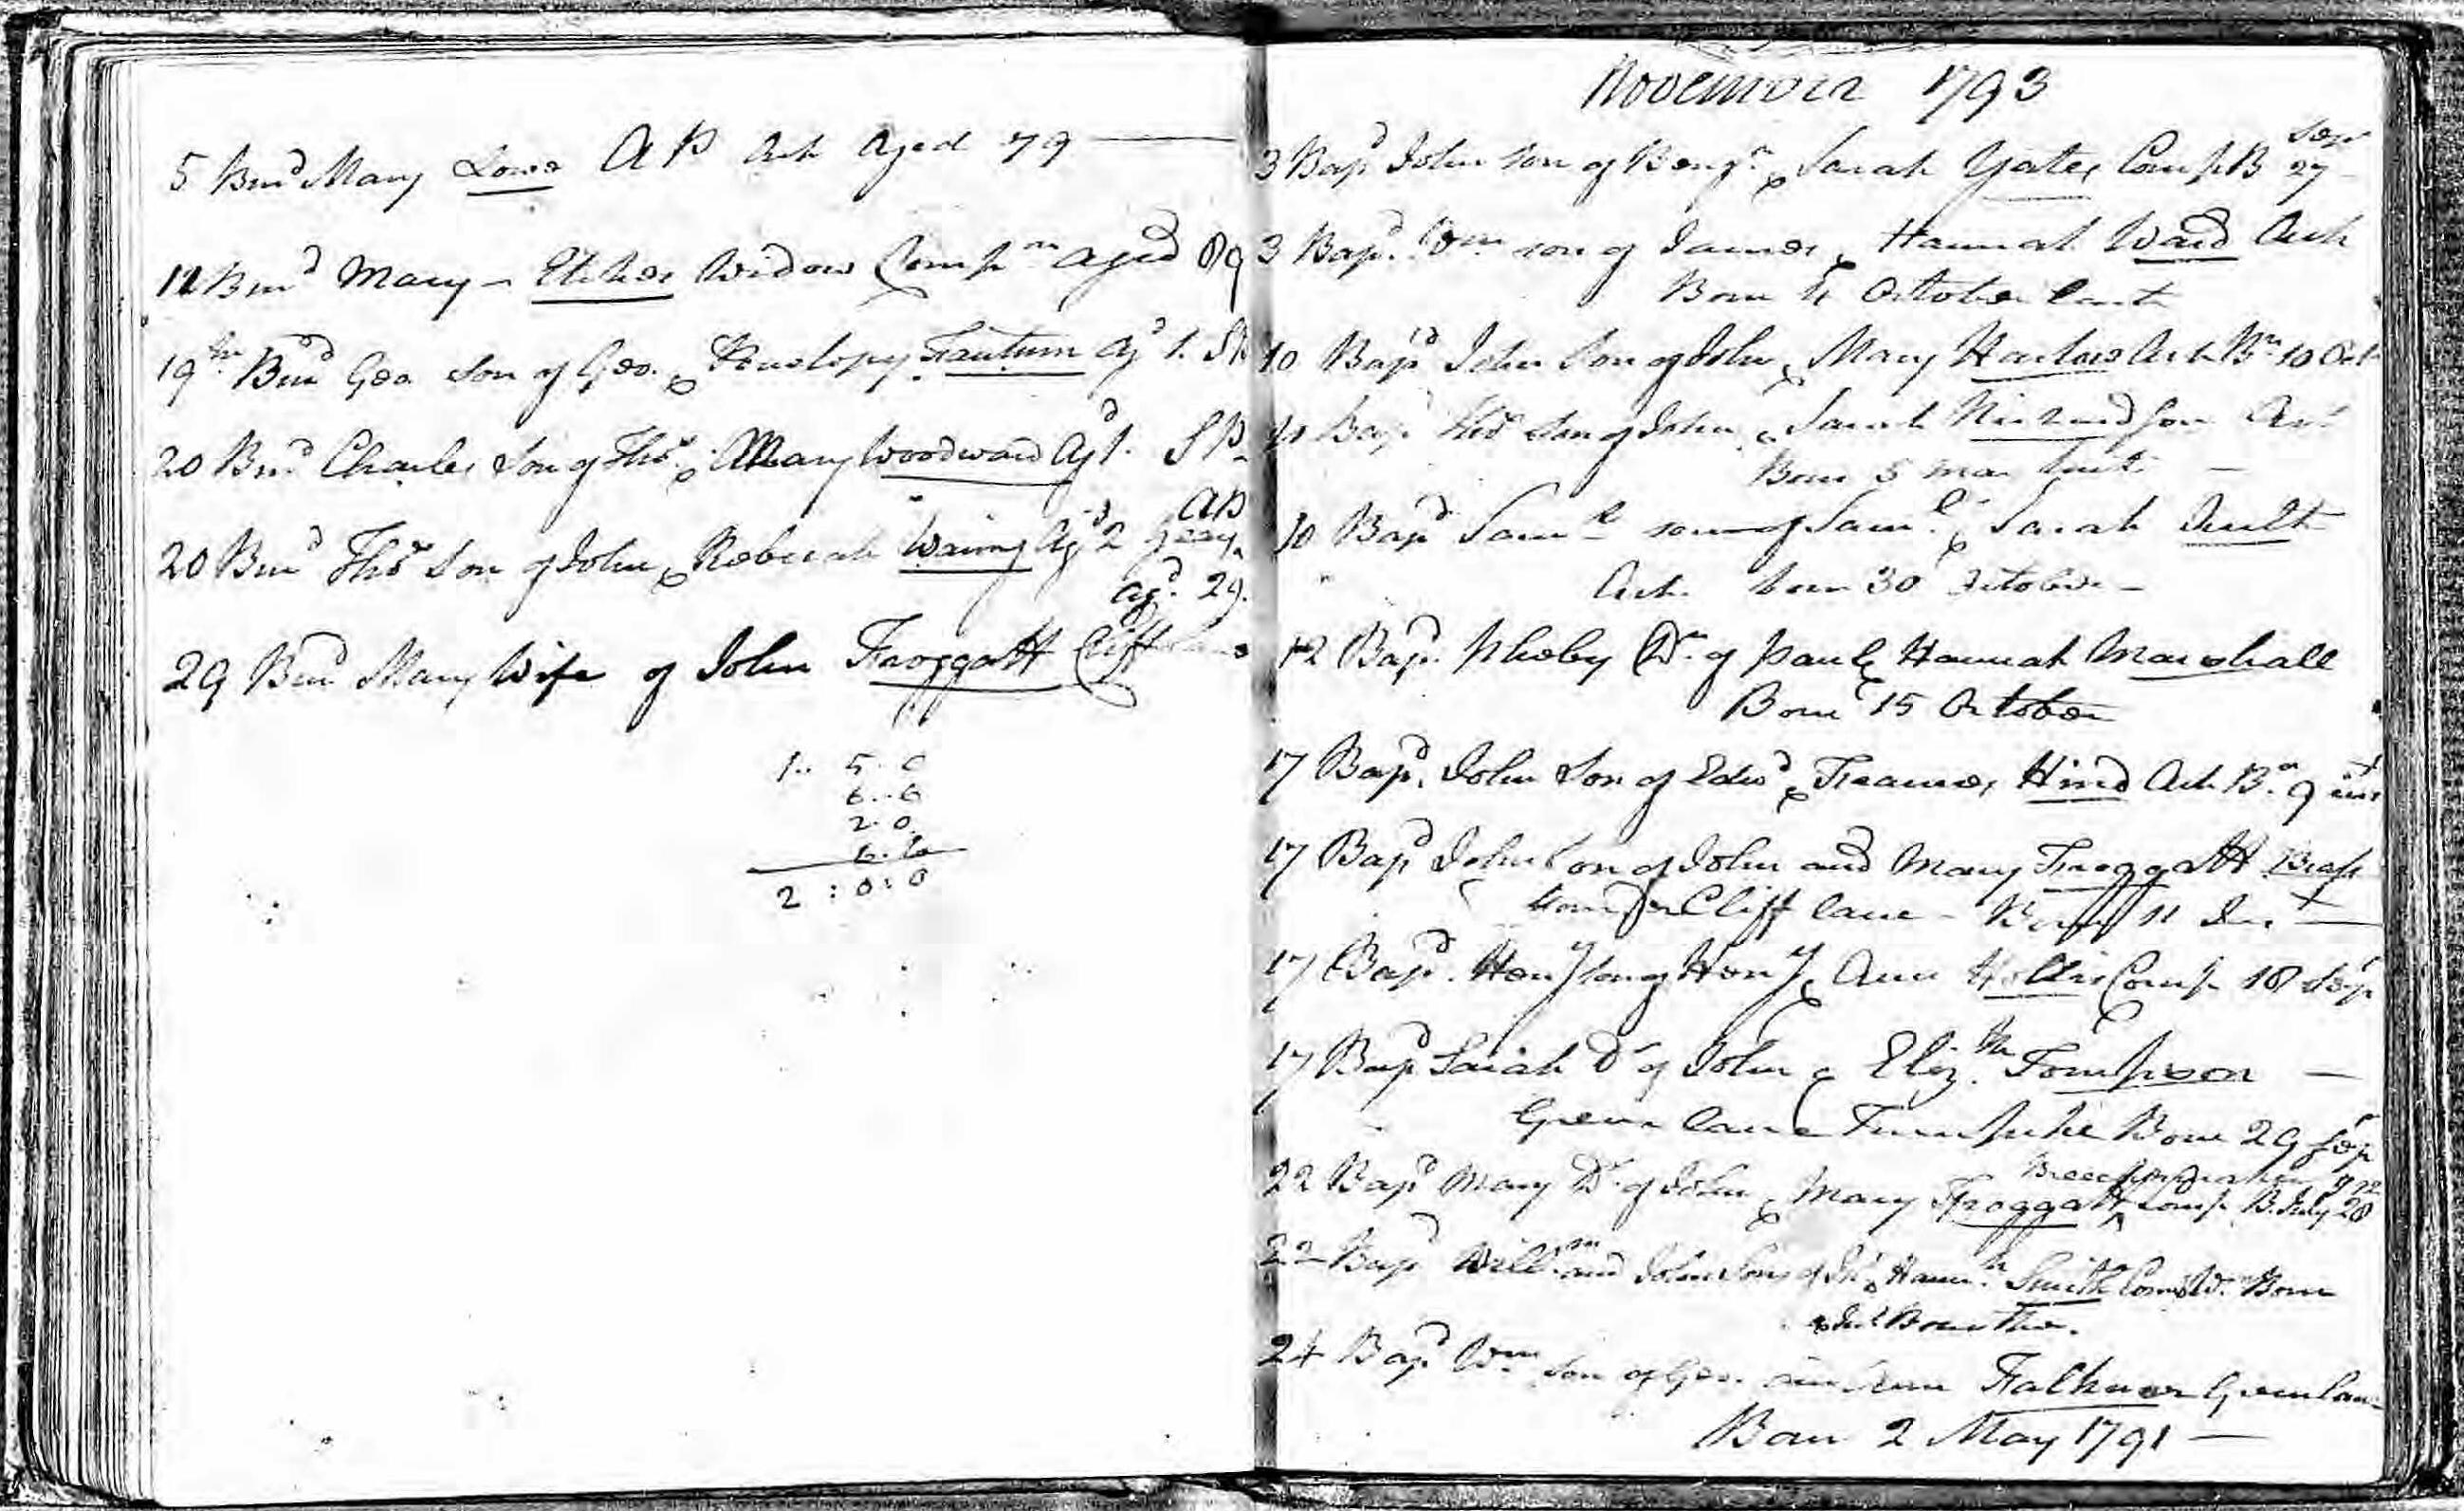 5 Burd Mary Lowe A P Ash Aged 79
12 Burd Mary - widow Compn aged 89
19th Burd Geo Son of Geo. & Penelopy Fantum agd 1. S P
20 Burd Charles Son of Thos. & Mary Woodward Agd 1. S P
A P
20 Burd Thos Son of John & Rebecah Waring Agd 2 years
agd. 29.
29 Burd Mary Wife of John Froggatt Cliff Lane
1.. 5. 0
6..6
2. 0
6. 6
2 : 0 : 0
November 1793
Sep
3 Bapd John son of Benjn & Sarah Yates Comp B 27
3 Bapd. Wm son of James & Hannah Ward Ash
Born 4 October last
10 Bapd John Son of John & Mary Ash Bn 10 Oct
10 Bapd Thos Son of John & Sarah Richardson Ash
Born 5 last
10 Bapd Saml son of Saml. & Sarah Ault
Ash born 30 October
12 Bapd. Pheby Dr. of Paul & Hannah Marshall
Born 15 October
17 Bapd. John Son of Edwd & Frances Hind Ash Bn. 9 inst
17 Bapd John Son of John and Mary Froggatt Brass
founder Cliff Lane - Born 11 Inst
17 Bapd. Heny Son of Heny & Ann Hollis Comp 18 Sep
17 Bapd Sarah Dr of John & Elizth. Tompson
Green Lane Turnpike Born 29 Sep
22 Bapd Mary Dr. of John & Mary Froggatt Comp B. July 28
22 Bapd Willm and John Sons of Jno & Hannh Smith Comp Wm Born
& Jno Born
24 Bapd Wm Son of Geo. and Ann Falkner Green Lane
Born 2 May 1791